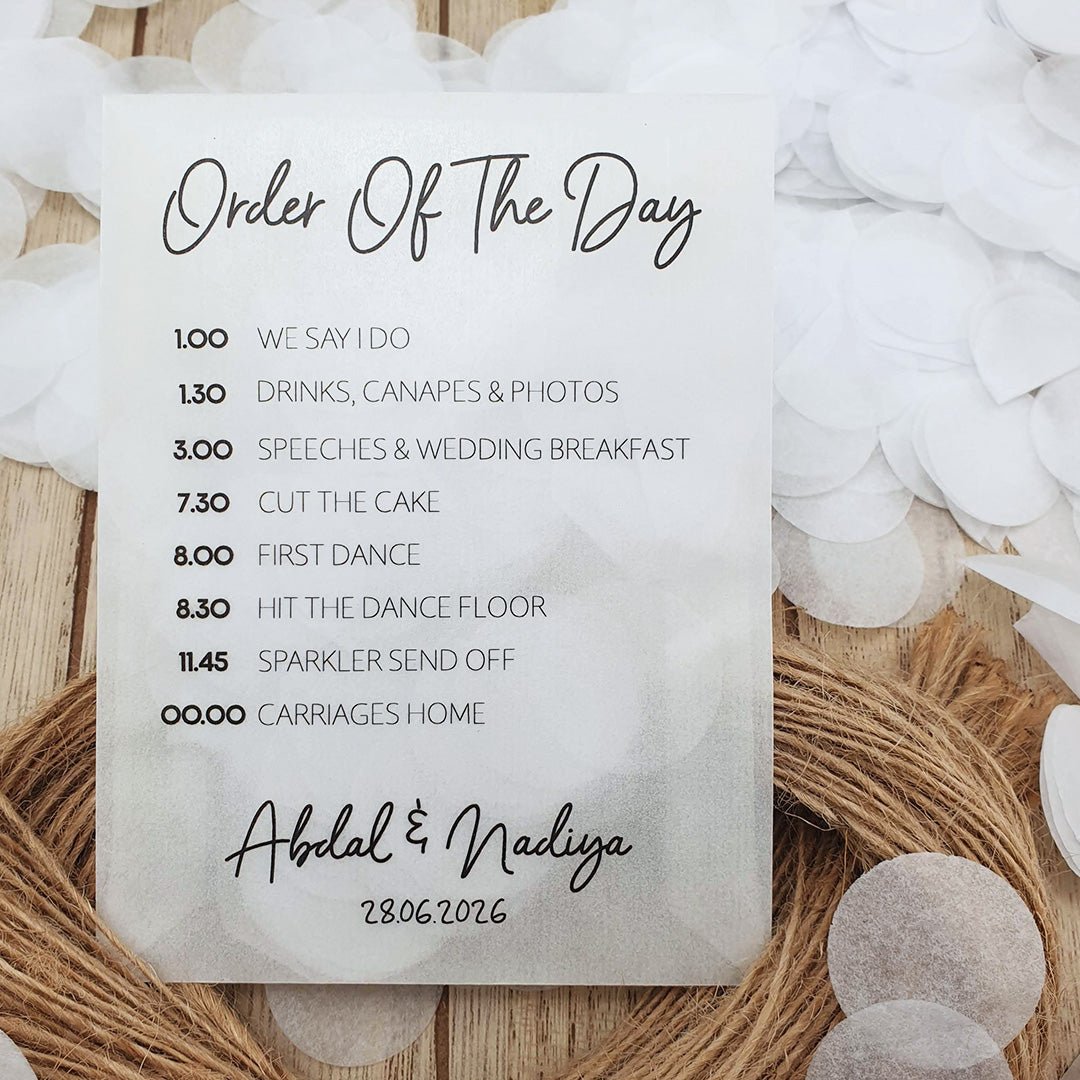 Order Of The Day
1.00 WE SAY I DO
1.30 DRINKS, CANAPES & PHOTOS
3.00 SPEECHES & WEDDING BREAKFAST
7.30 CUT THE CAKE
8.00 FIRST DANCE
8.30 HIT THE DANCE FLOOR
11.45 SPARKLER SEND OFF
00.00 CARRIAGES HOME
Abdal & Nadiya
28.06.2026